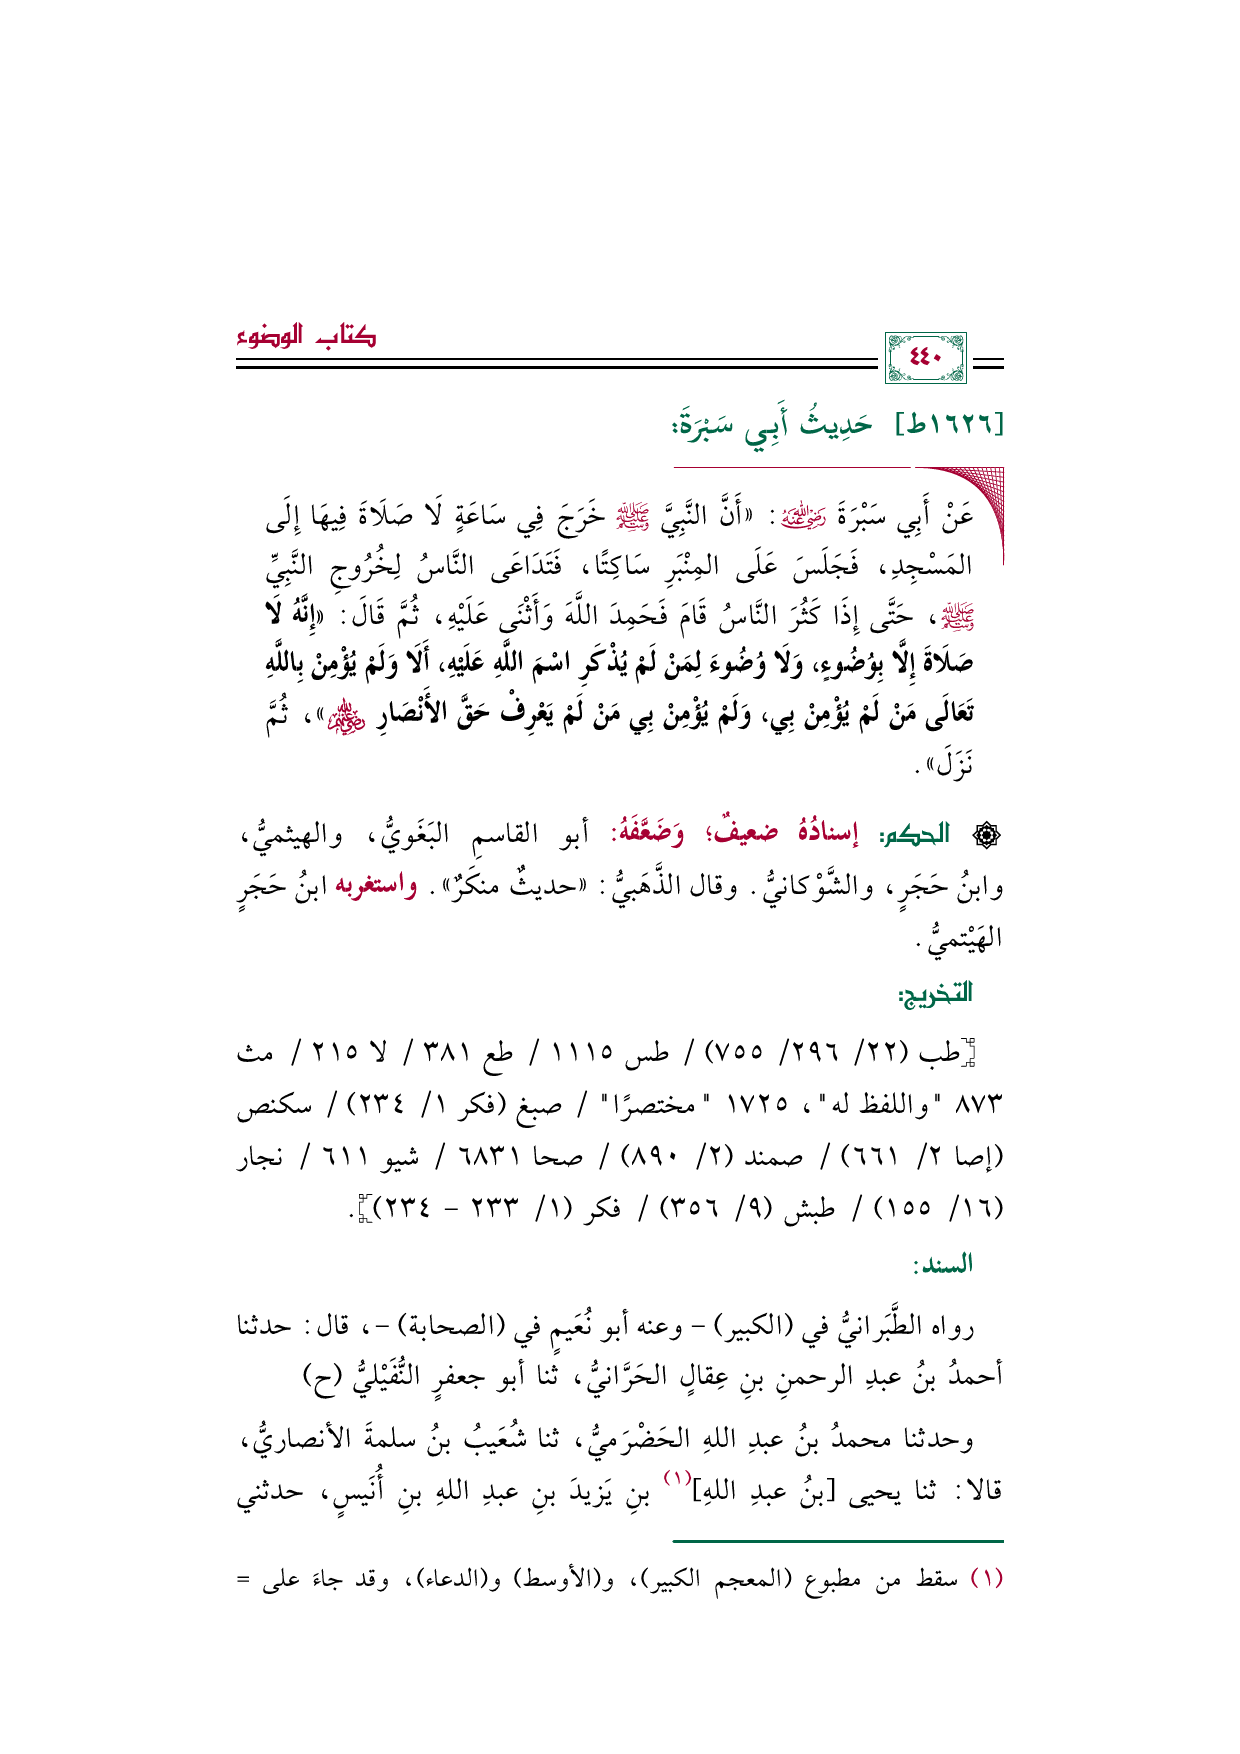 كتاب الوضوء
٤٤٠
[١٦٢٦ط] حَدِيثُ أَبِي سَبْرَةَ:
عَنْ أَبِي سَبْرَةَ رضي الله عنه: «أَنَّ النَّبِيَّ ﷺ خَرَجَ فِي سَاعَةٍ لَا صَلَاةَ فِيهَا إِلَى
المَسْجِدِ، فَجَلَسَ عَلَى المِنْبَرِ سَاكِتًا، فَتَدَاعَى النَّاسُ لِخُرُوجِ النَّبِيِّ
ﷺ، حَتَّى إِذَا كَثُرَ النَّاسُ قَامَ فَحَمِدَ اللَّهَ وَأَثْنَى عَلَيْهِ، ثُمَّ قَالَ: «إِنَّهُ لَا
صَلَاةَ إِلَّا بِوُضُوءٍ، وَلَا وُضُوءَ لِمَنْ لَمْ يُذْكَرِ اسْمَ اللَّهِ عَلَيْهِ، أَلَا وَلَمْ يُؤْمِنْ بِاللَّهِ
تَعَالَى مَنْ لَمْ يُؤْمِنْ بِي، وَلَمْ يُؤْمِنْ بِي مَنْ لَمْ يَعْرِفْ حَقَّ الأَنْصَارِ»، ثُمَّ
نَزَلَ».
الحكم: إسنادُهُ ضعيفٌ؛ وَضَعَّفَهُ: أبو القاسمِ البَغَويُّ، والهيثميُّ،
وابنُ حَجَرٍ، والشَّوْكانيُّ. وقال الذَّهَبيُّ: «حديثٌ منكَرٌ». واستغربه ابنُ حَجَرٍ
الهَيْتميُّ.
التخريج:
[طب (٢٢/ ٢٩٦/ ٧٥٥) / طس ١١١٥ / طع ٣٨١ / لا ٢١٥ / مث
٨٧٣ "واللفظ له"، ١٧٢٥ "مختصرًا" / صبغ (فكر ١/ ٢٣٤) / سكنص
(إصا ٢/ ٦٦١) / صمند (٢/ ٨٩٠) / صحا ٦٨٣١ / شيو ٦١١ / نجار
(١٦/ ١٥٥) / طبش (٩/ ٣٥٦) / فكر (١/ ٢٣٣ – ٢٣٤)].
السند:
رواه الطَّبَرانيُّ في (الكبير) – وعنه أبو نُعَيمٍ في (الصحابة) –، قال: حدثنا
أحمدُ بنُ عبدِ الرحمنِ بنِ عِقالٍ الحَرَّانيُّ، ثنا أبو جعفرٍ النُّفَيْليُّ (ح)
وحدثنا محمدُ بنُ عبدِ اللهِ الحَضْرَميُّ، ثنا شُعَيبُ بنُ سلمةَ الأنصاريُّ،
قالا: ثنا يحيى [بنُ عبدِ اللهِ](١) بنِ يَزيدَ بنِ عبدِ اللهِ بنِ أُنَيسٍ، حدثني
(١) سقط من مطبوع (المعجم الكبير)، و(الأوسط) و(الدعاء)، وقد جاءَ على =